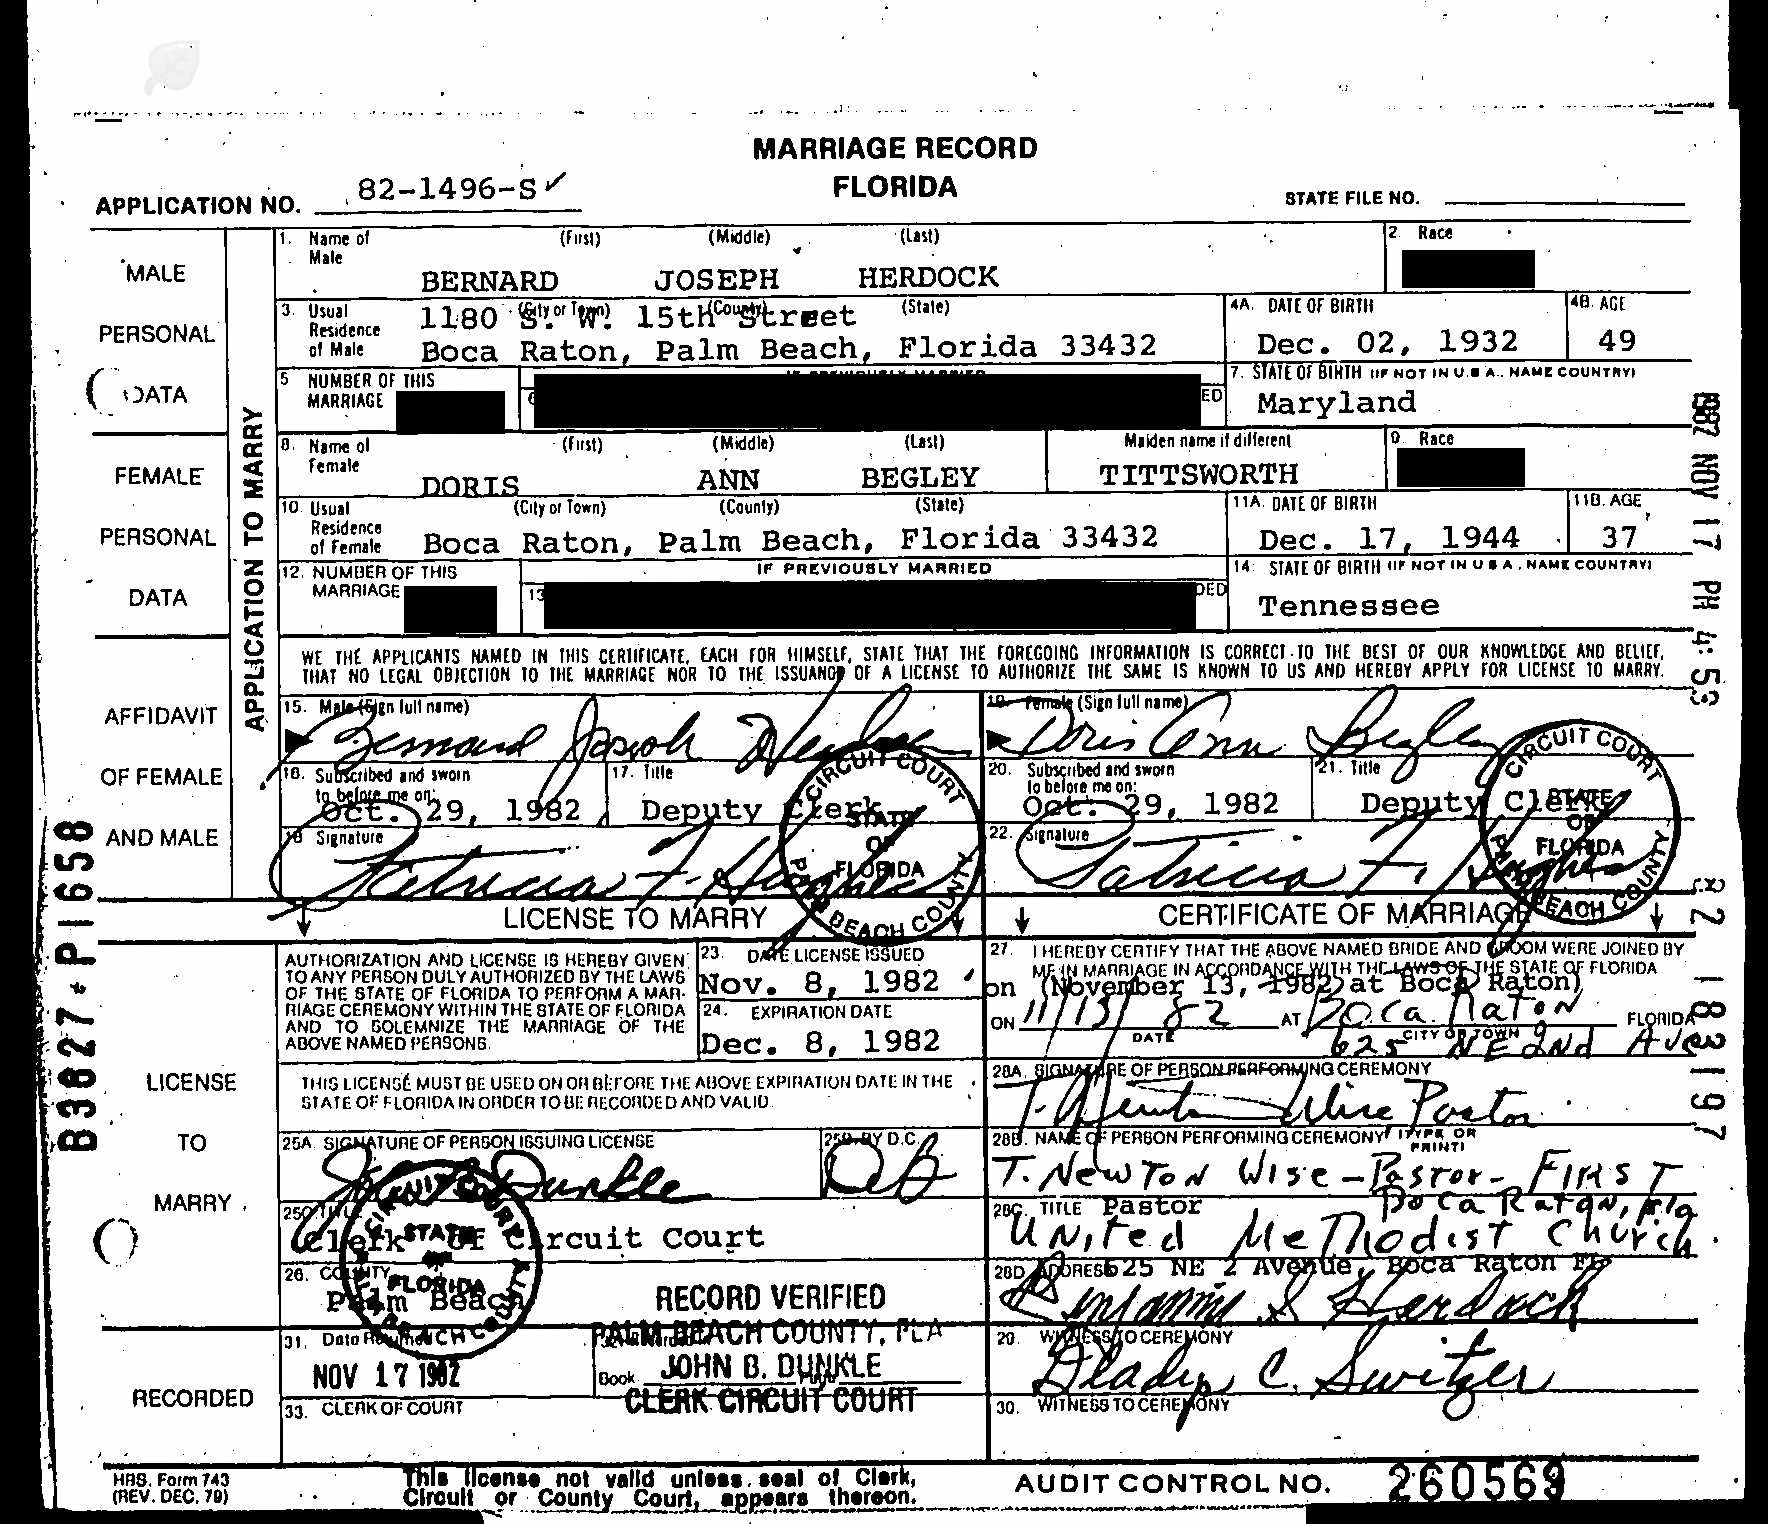 MARRIAGE RECORD
FLORIDA
APPLICATION NO. 82-1496-S✓
STATE FILE NO.
MALE
PERSONAL
DATA
FEMALE
PERSONAL
DATA
AFFIDAVIT
OF FEMALE
AND MALE
APPLICATION TO MARRY
1. Name of Male (First) (Middle) (Last)
BERNARD JOSEPH HERDOCK
2. Race
3. Usual Residence of Male (City or Town) (County) (State)
1180 S. W. 15th Street
Boca Raton, Palm Beach, Florida 33432
4A. DATE OF BIRTH
Dec. 02, 1932
4B. AGE
49
5 NUMBER OF THIS MARRIAGE
7. STATE OF BIRTH (IF NOT IN U.S.A., NAME COUNTRY)
Maryland
8. Name of Female (First) (Middle) (Last) Maiden name if different
DORIS ANN BEGLEY TITTSWORTH
9. Race
10. Usual Residence of Female (City or Town) (County) (State)
Boca Raton, Palm Beach, Florida 33432
11A. DATE OF BIRTH
Dec. 17, 1944
11B. AGE
37
12. NUMBER OF THIS MARRIAGE
IF PREVIOUSLY MARRIED
13
14. STATE OF BIRTH (IF NOT IN U.S.A., NAME COUNTRY)
Tennessee
WE THE APPLICANTS NAMED IN THIS CERTIFICATE, EACH FOR HIMSELF, STATE THAT THE FOREGOING INFORMATION IS CORRECT TO THE BEST OF OUR KNOWLEDGE AND BELIEF,
THAT NO LEGAL OBJECTION TO THE MARRIAGE NOR TO THE ISSUANCE OF A LICENSE TO AUTHORIZE THE SAME IS KNOWN TO US AND HEREBY APPLY FOR LICENSE TO MARRY.
15. Male (Sign full name)
Bernard Joseph Herdock
16. Subscribed and sworn to before me on:
Oct. 29, 1982
17. Title
Deputy Clerk
18 Signature
Patricia F. Hughes
CIRCUIT COURT STATE OF FLORIDA PALM BEACH COUNTY
19. Female (Sign full name)
Doris Ann Begley
20. Subscribed and sworn to before me on:
Oct. 29, 1982
21. Title
Deputy Clerk
22. Signature
Patricia F. Hughes
CIRCUIT COURT STATE OF FLORIDA PALM BEACH COUNTY
LICENSE TO MARRY
CERTIFICATE OF MARRIAGE
LICENSE
TO
MARRY
AUTHORIZATION AND LICENSE IS HEREBY GIVEN
TO ANY PERSON DULY AUTHORIZED BY THE LAWS
OF THE STATE OF FLORIDA TO PERFORM A MAR-
RIAGE CEREMONY WITHIN THE STATE OF FLORIDA
AND TO SOLEMNIZE THE MARRIAGE OF THE
ABOVE NAMED PERSONS.
23. DATE LICENSE ISSUED
Nov. 8, 1982
24. EXPIRATION DATE
Dec. 8, 1982
THIS LICENSE MUST BE USED ON OR BEFORE THE ABOVE EXPIRATION DATE IN THE
STATE OF FLORIDA IN ORDER TO BE RECORDED AND VALID.
25A. SIGNATURE OF PERSON ISSUING LICENSE
John B. Dunkle
25B. BY D.C.
25C TITLE
Clerk of Circuit Court
26. COUNTY
Palm Beach
CIRCUIT COURT STATE OF FLORIDA PALM BEACH COUNTY
27. I HEREBY CERTIFY THAT THE ABOVE NAMED BRIDE AND GROOM WERE JOINED BY
ME IN MARRIAGE IN ACCORDANCE WITH THE LAWS OF THE STATE OF FLORIDA
on (November 13, 1982 at Boca Raton)
ON 11/13/82 AT Boca Raton FLORIDA
DATE CITY OR TOWN
625 NE 2nd Ave
28A. SIGNATURE OF PERSON PERFORMING CEREMONY
T. Newton Wise Pastor
28B. NAME OF PERSON PERFORMING CEREMONY (TYPE OR PRINT)
T. Newton Wise - Pastor - First
Boca Raton, Fla
28C. TITLE Pastor
United Methodist Church.
28D ADDRESS 625 NE 2 Avenue, Boca Raton FL
Herdock
29. WITNESS TO CEREMONY
Gladys C. Switzer
30. WITNESS TO CEREMONY
RECORDED
RECORD VERIFIED
PALM BEACH COUNTY, FLA
JOHN B. DUNKLE
CLERK CIRCUIT COURT
31. Date
NOV 17 1982
Book
33. CLERK OF COURT
HRS. Form 743
(REV. DEC. 79)
This license not valid unless seal of Clerk,
Circuit or County Court, appears thereon.
AUDIT CONTROL NO. 260569
B3827 P1658
1982 NOV 17 PM 4:53
82 183197